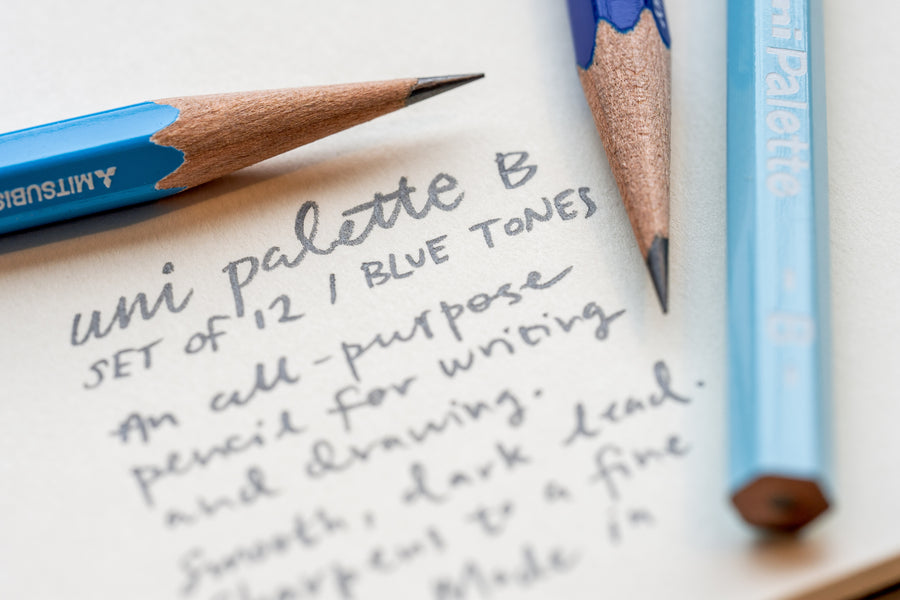 MITSUBIS
uni Palette
B
uni palette B
SET OF 12 / BLUE TONES
An all-purpose
pencil for writing
and drawing.
Smooth, dark lead.
Sharpens to a fine
Made in